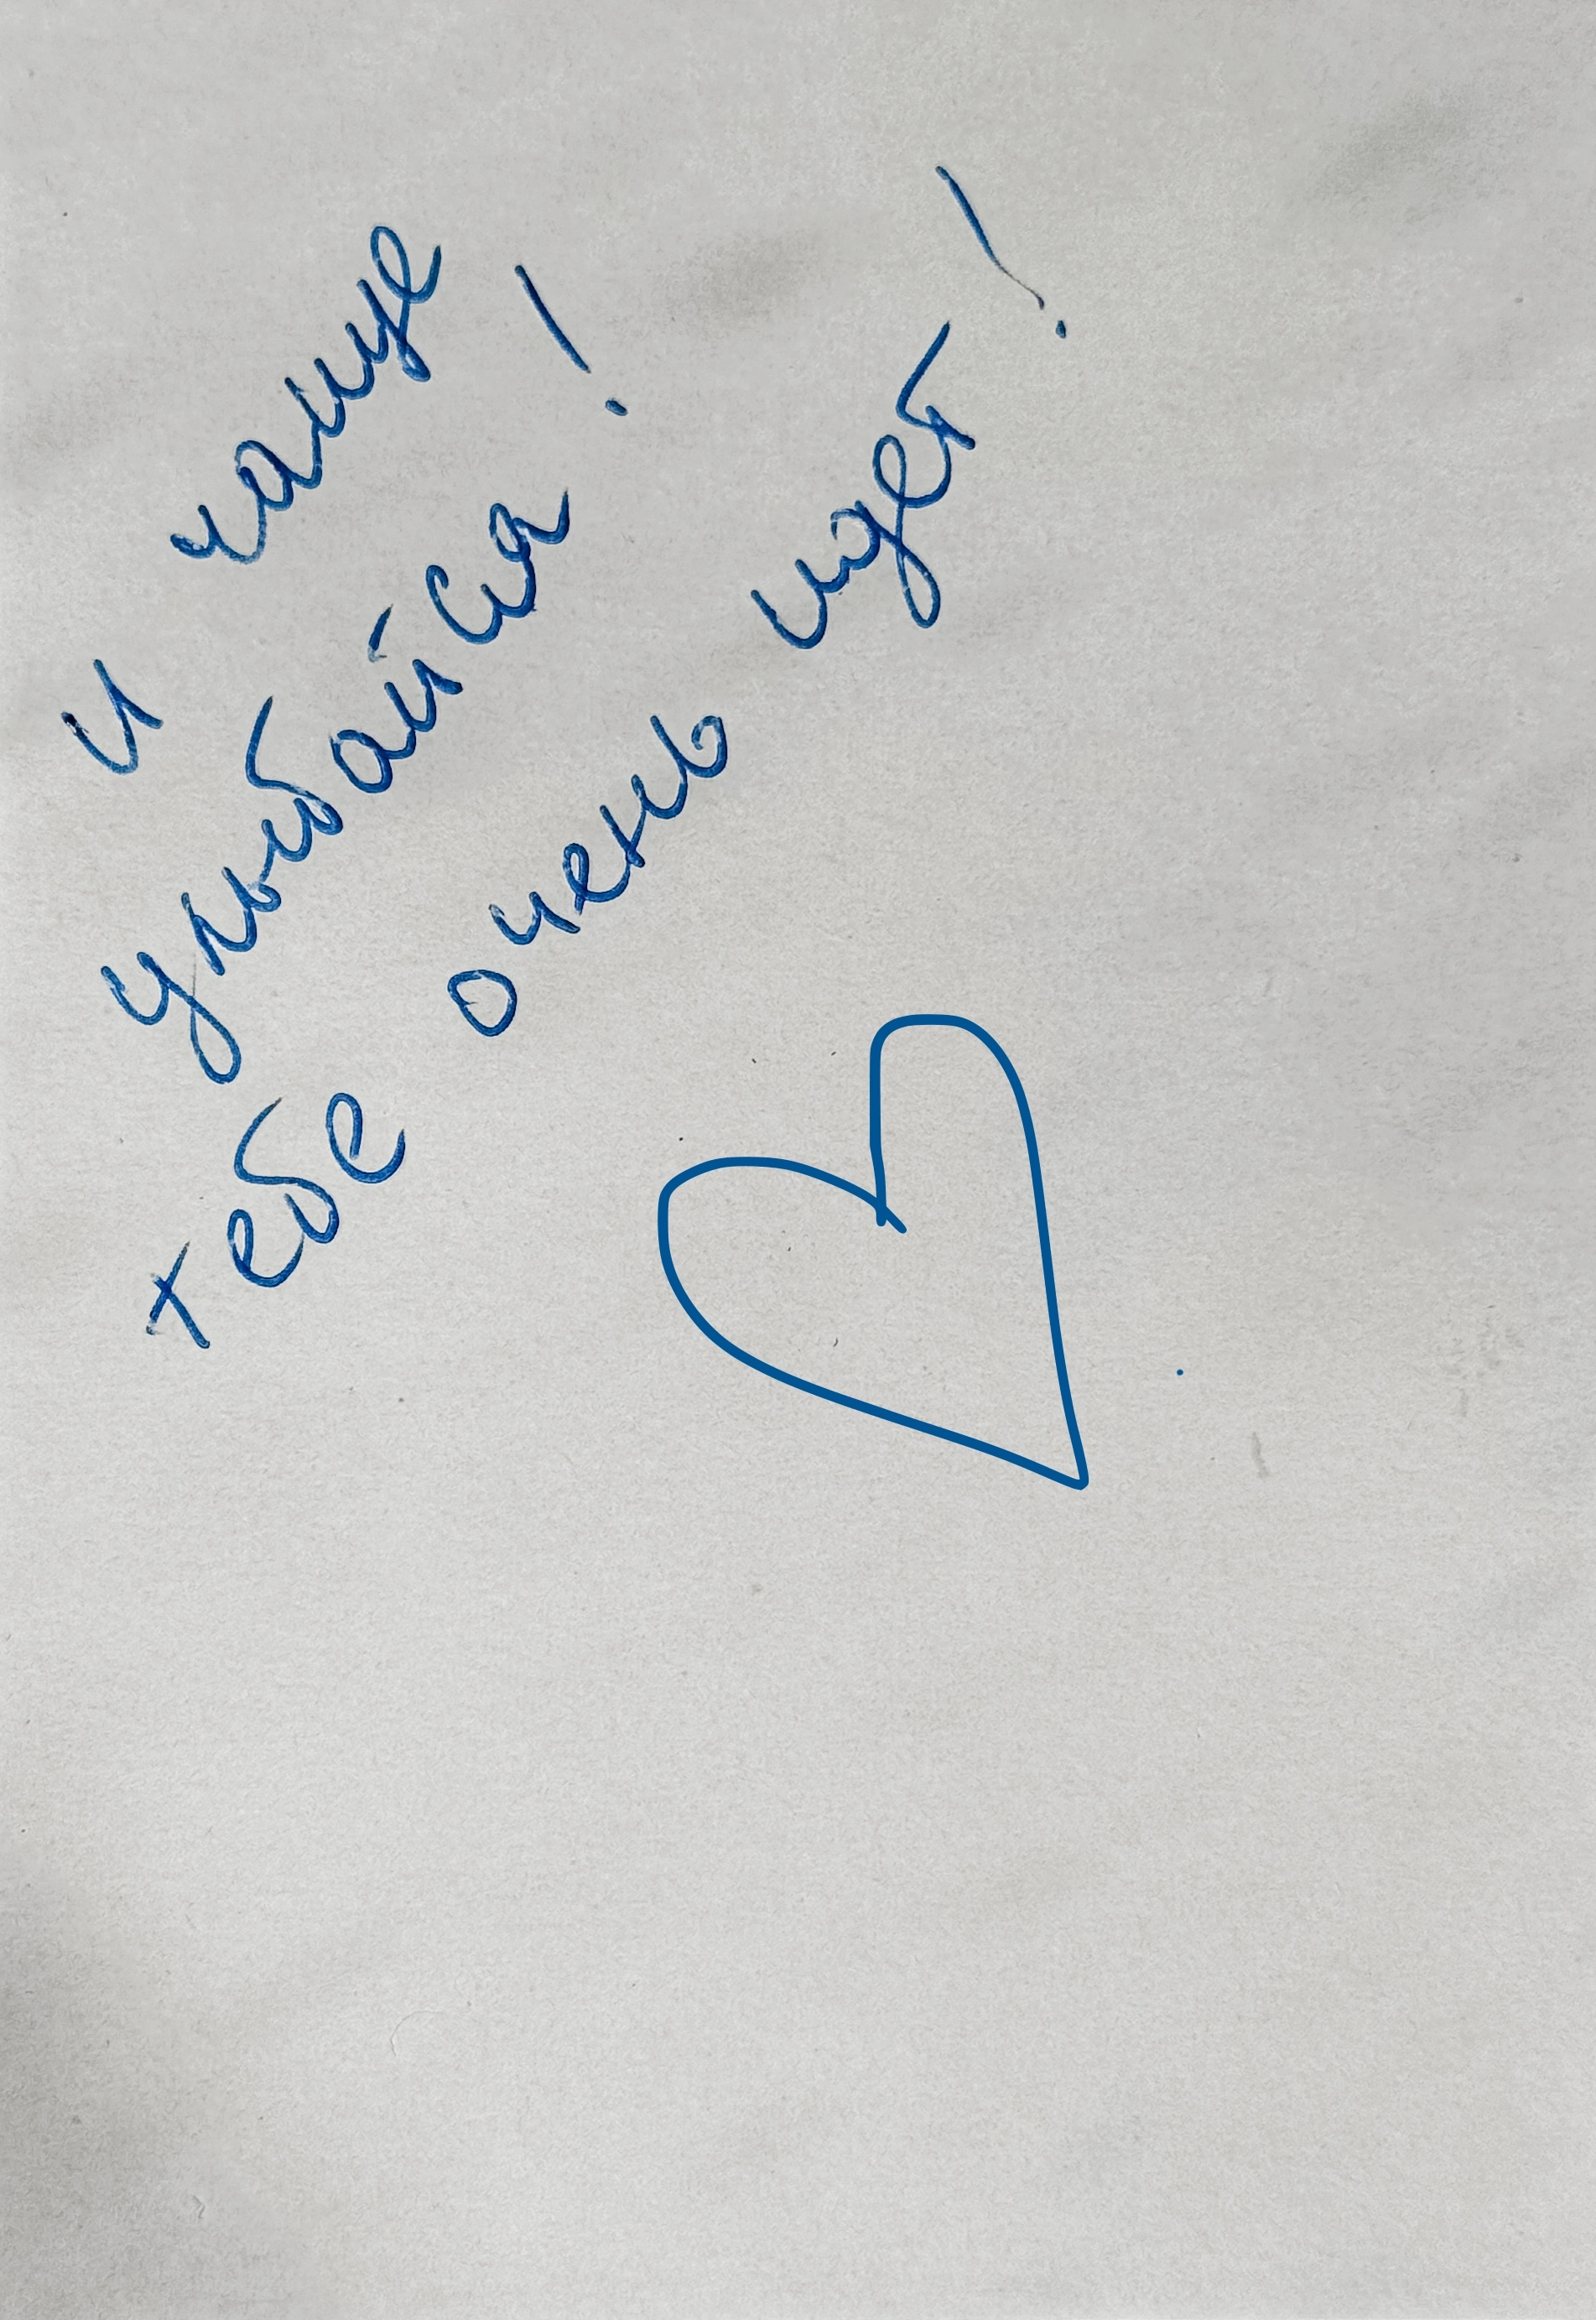 и чаще
улыбайся!
тебе очень идет!